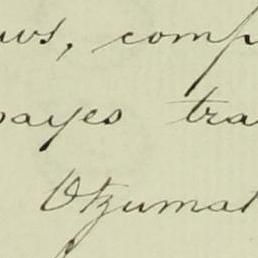 ws, comp
payes tra
Utzumat